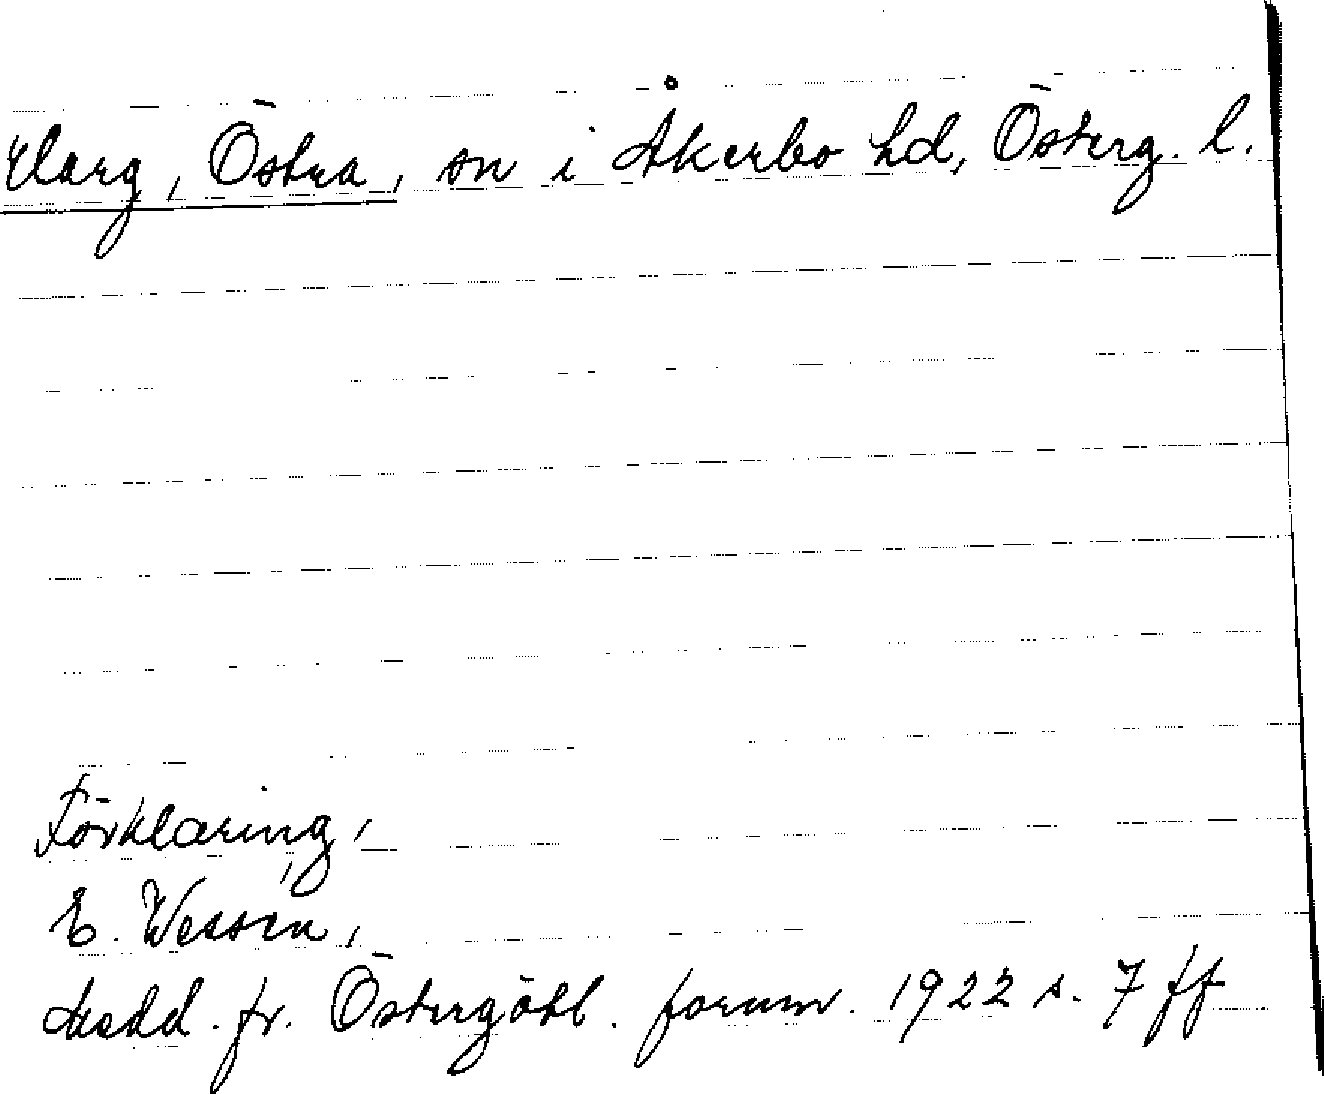 Harg, Östra, sn i Åkerbo hd, Österg. l.
Förklaring,
E. Wessén,
Medd. fr. Östergötl. fornm. 1922 s. 7 ff